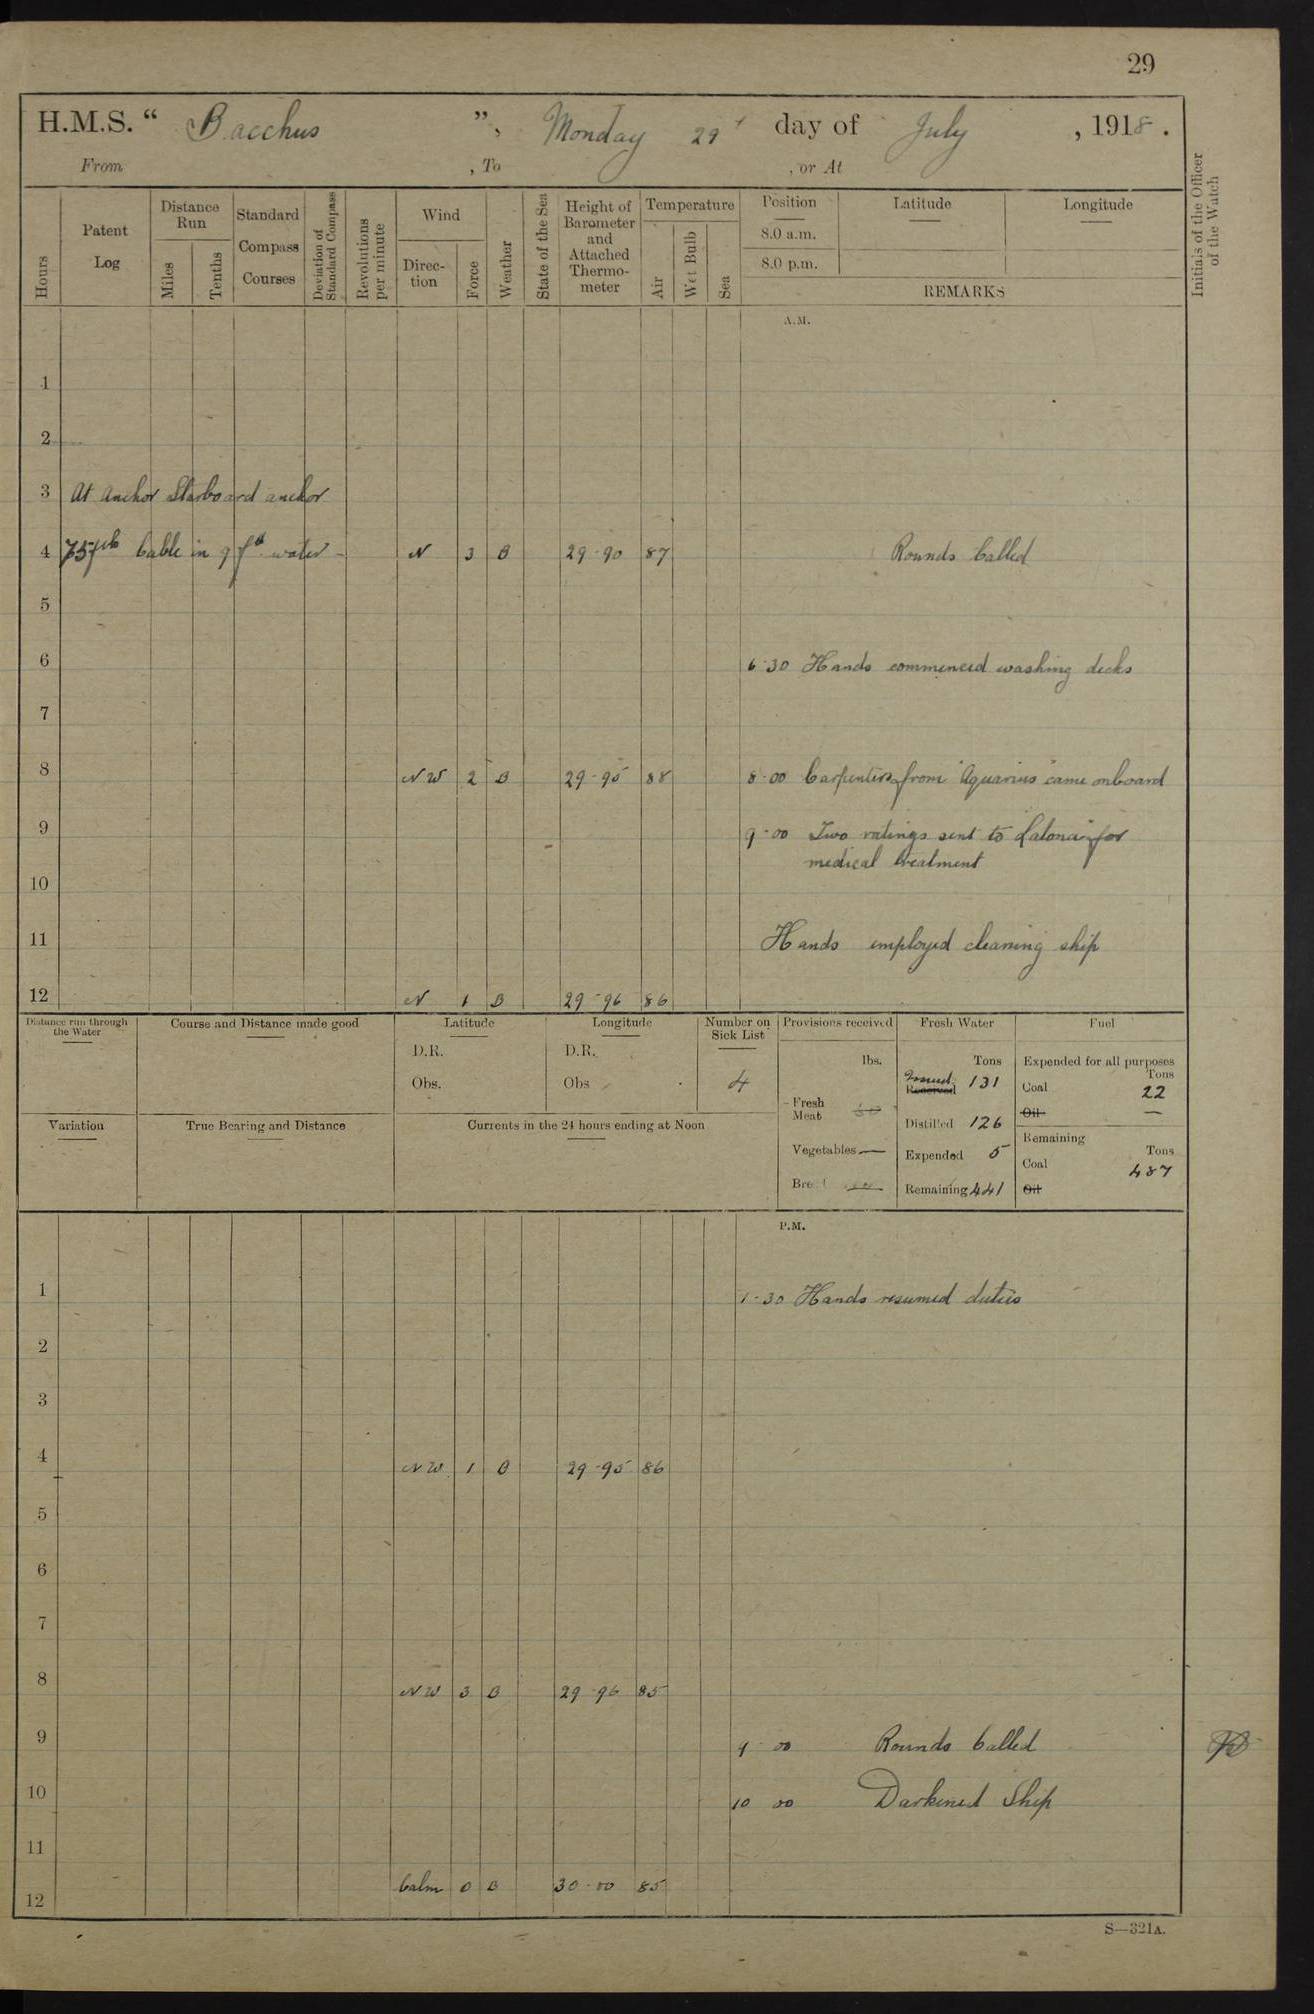 29
H.M.S. “ Bacchus ”, Monday 29 day of July , 1918 .
From , To , or At
Hours
Patent Log
Distance Run
Miles
Tenths
Standard Compass Courses
Deviation of Standard Compass
Revolutions per minute
Wind
Direc-tion
Force
Weather
State of the Sea
Height of Barometer and Attached Thermo-meter
Temperature
Air
Wet Bulb
Sea
Position
8.0 a.m.
8.0 p.m.
Latitude
Longitude
REMARKS
Initials of the Officer of the Watch
A.M.
1
2
3 At Anchor Starboard anchor
4 Cable in 9 water - N 3 B 29-90 87 Rounds Called
5
6 6-30 Hands commenced washing decks
7
8 NW 2 B 29-95 88 8-00 Carpenters from "Aquarius" came onboard
9 9-00 Two ratings sent to "Latona" for
medical treatment
10
11 Hands employed cleaning ship
12 N 1 B 29-96 86
Distance run through the Water
Course and Distance made good
Latitude
D.R.
Obs.
Longitude
D.R.
Obs
Number on Sick List
4
Provisions received
lbs.
Fresh Meat
Vegetables —
Fresh Water
Tons
Received 131
Distilled 126
Expended 5
Remaining 441
Fuel
Expended for all purposes
Tons
Coal 22
Oil —
Remaining
Tons
Coal 437
Oil
Variation
True Bearing and Distance
Currents in the 24 hours ending at Noon
P.M.
1 1-30 Hands resumed duties
2
3
4 NW 1 B 29-95 86
5
6
7
8 NW 3 B 29-96 85
9 9 00 Rounds Called
10 10 00 Darkened Ship
11
12 Calm 0 B 30-00 85
S—321A.